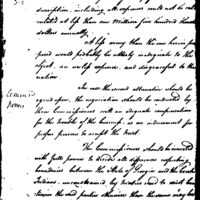 description, including all expenses could not be cal-
culated at less than one million five hundred thousand
dollars annually.
A less army than the one herein pro-
posed would probably be utterly inadequate to the
object, an useless expense, and disgraceful to the
nation.
In case the second alternative should be
agreed upon, the negociation should be conducted by
three Commissioners with an adequate compensation
for the trouble of the business, as an inducement for
proper persons to accept the trust.
The Commissioners should be invested
with full powers to decide all differences respecting
boundaries between the State of Georgia and the Creek
Indians, unconstrained by treaties said to exist be-
tween the said parties otherwise than the same may be